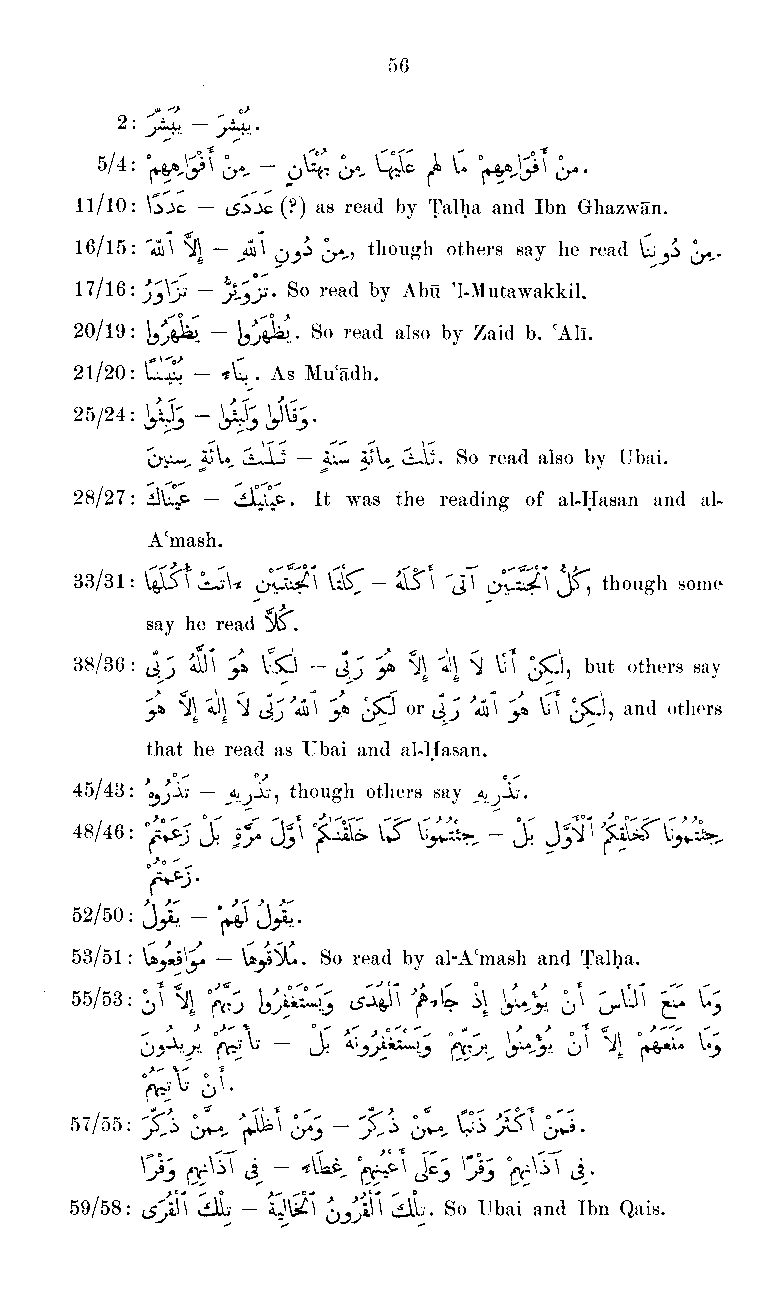 56
2: يُبَشِّرَ — يُبْشِرَ.
5/4: مِنْ أَفْوَاهِهِمْ — مِنْ أَفْوَاهِهِمْ مَا لَهُمْ عَلَيْهَا مِنْ بُهْتَانٍ.
11/10: عَدَدًا — عَدَدَى (?) as read by Ṭalḥa and Ibn Ghazwān.
16/15: إِلَّا ٱللّٰهَ — مِنْ دُونِ ٱللّٰهِ, though others say he read مِنْ دُونِنَا.
17/16: تَزَاوَرُ — تَزْوَئِرُّ. So read by Abū 'l-Mutawakkil.
20/19: يَظْهَرُوا — يُظْهَرُوا. So read also by Zaid b. ʿAlī.
21/20: بُنْيَٰنًا — بِنَاءً. As Muʿādh.
25/24: وَلَبِثُوا — وَقَالُوا وَلَبِثُوا.
ثَلَٰثَ مِائَةٍ سِنِينَ — ثَلَٰثَ مِائَةِ سَنَةٍ. So read also by Ubai.
28/27: عَيْنَاكَ — عَيْنَيْكَ. It was the reading of al-Ḥasan and al-
Aʿmash.
33/31: كِلْتَا ٱلْجَنَّتَيْنِ ءَاتَتْ أُكُلَهَا — كُلُّ ٱلْجَنَّتَيْنِ آتَىٰ أُكُلَهُ, though some
say he read كِلَا.
38/36: لَٰكِنَّا هُوَ ٱللّٰهُ رَبِّي — لَٰكِنْ أَنَا لَا إِلَٰهَ إِلَّا هُوَ رَبِّي, but others say
لَٰكِنْ هُوَ ٱللّٰهُ رَبِّي لَا إِلَٰهَ إِلَّا هُوَ or لَٰكِنْ أَنَا هُوَ ٱللّٰهُ رَبِّي, and others
that he read as Ubai and al-Ḥasan.
45/43: تَذْرُوهُ — تُذْرِيهِ, though others say تَذْرِيهِ.
48/46: جِئْتُمُونَا كَمَا خَلَقْنَٰكُمْ أَوَّلَ مَرَّةٍ بَلْ زَعَمْتُمْ — جِئْتُمُونَا كَخَلْقِكُمُ ٱلْأَوَّلِ بَلْ
زَعَمْتُمْ.
52/50: يَقُولُ — يَقُولُ لَهُمْ.
53/51: مُوَاقِعُوهَا — مُلَاقُوهَا. So read by al-Aʿmash and Ṭalḥa.
55/53: وَمَا مَنَعَ ٱلنَّاسَ أَنْ يُؤْمِنُوا إِذْ جَاءَهُمُ ٱلْهُدَى وَيَسْتَغْفِرُوا رَبَّهُمْ إِلَّا أَنْ
تَأْتِيَهُمْ — وَمَا مَنَعَهُمْ إِلَّا أَنْ يُؤْمِنُوا بِرَبِّهِمْ وَيَسْتَغْفِرُونَهُ بَلْ يُرِيدُونَ
أَنْ تَأْتِيَهُمْ.
57/55: وَمَنْ أَظْلَمُ مِمَّنْ ذُكِّرَ — فَمَنْ أَكْثَرُ ذَنْبًا مِمَّنْ ذُكِّرَ.
فِي آذَانِهِمْ وَقْرًا — فِي آذَانِهِمْ وَقْرًا وَعَلَى أَعْيُنِهِمْ غِطَاءً.
59/58: تِلْكَ ٱلْقُرَى — تِلْكَ ٱلْقُرُونُ ٱلْخَالِيَةُ. So Ubai and Ibn Qais.